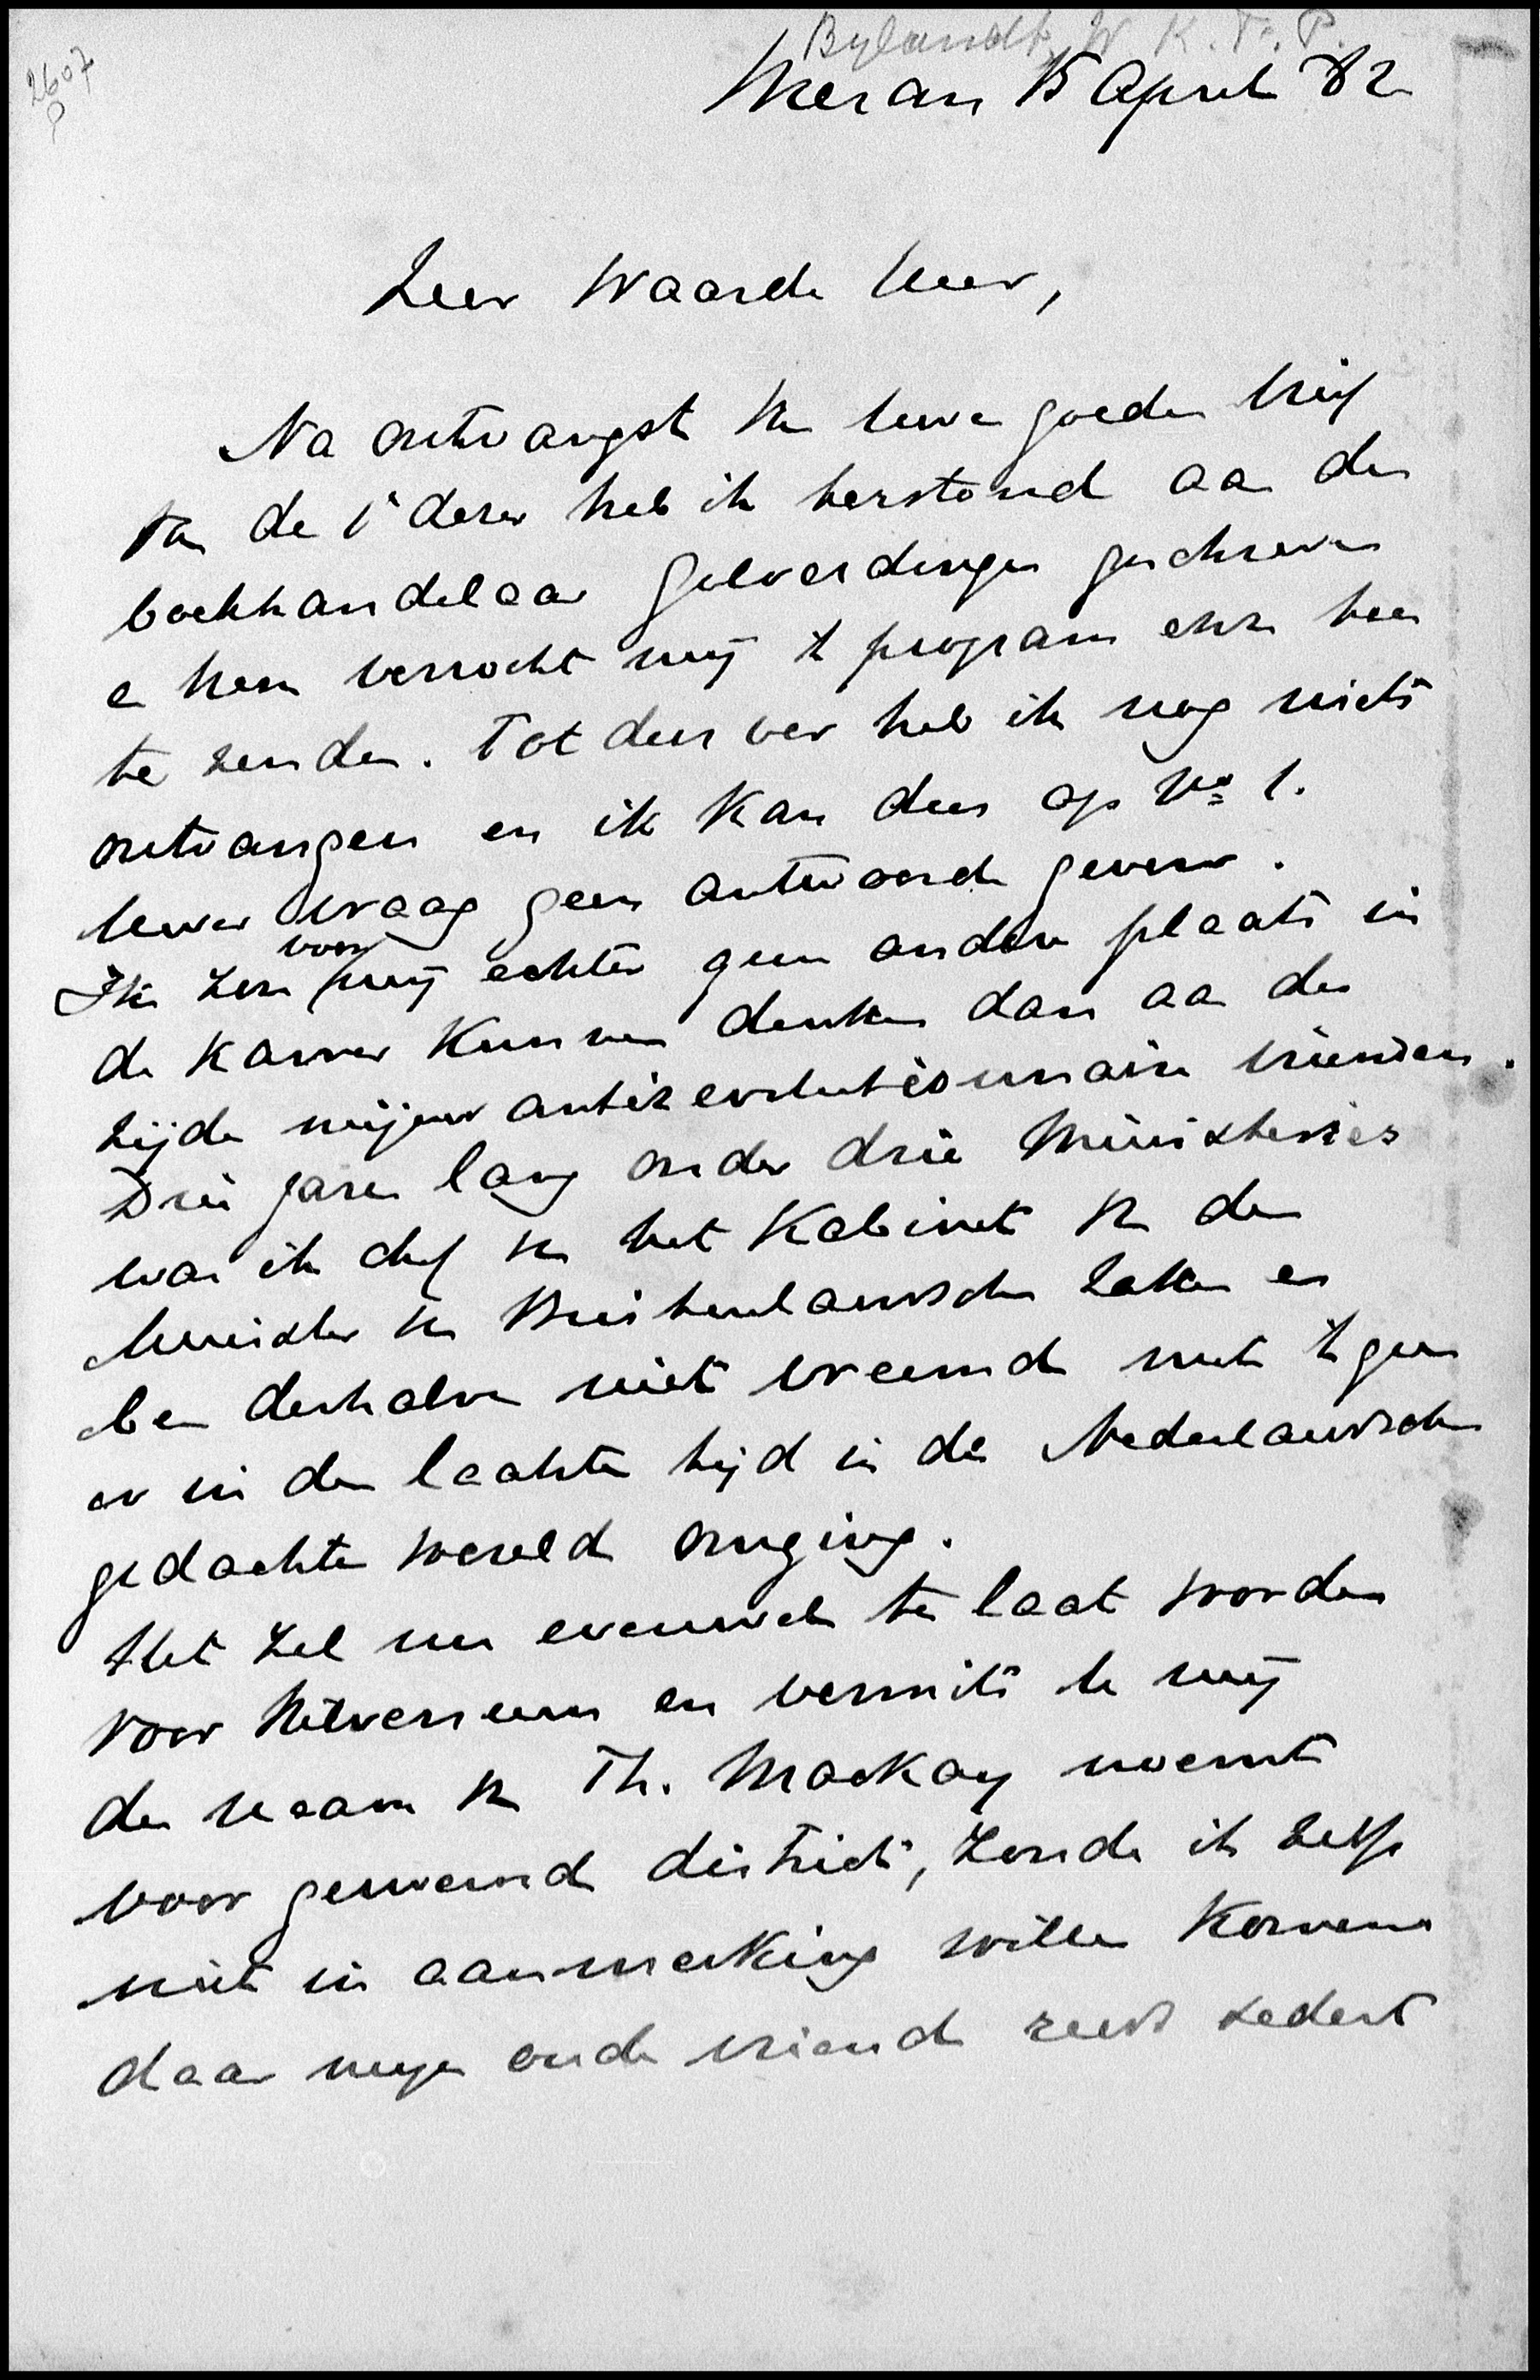 2607
Bylandt, W. K. F. P.
Meran 15 April 82
Zeer Waarde Heer,
Na ontvangst vn Uwe goeden brief
van de 1e dezer heb ik terstond aan den
boekhandelaar Gelverdinge geschreven
en hem verzocht mij 't program enz. hier
te zenden. Tot dus ver heb ik nog niets
ontvangen en ik kan dus op No 1.
Uwer vraag geen antwoord geven.
Ik zou voor mij echter geen andere plaats in
de Kamer kunnen denken dan aan de
zijde mijner antirevolutionnaire vrienden.
Drie jaren lang onder drie Ministeries
was ik chef vn het Kabinet vn den
Minister vn Buitenlandsche Zaken en
ben derhalve niet vreemd met 't geen
er in den laatste tijd in de Nederlandsche
gedachte wereld omging.
Het zal nu evenwel te laat worden
voor Hilversum en vermits U mij
den naam vn Th. Mackay noemt
voor genoemd district, zoude ik zelfs
niet in aanmerking willen komen
daar mijn oude vriend reeds sedert